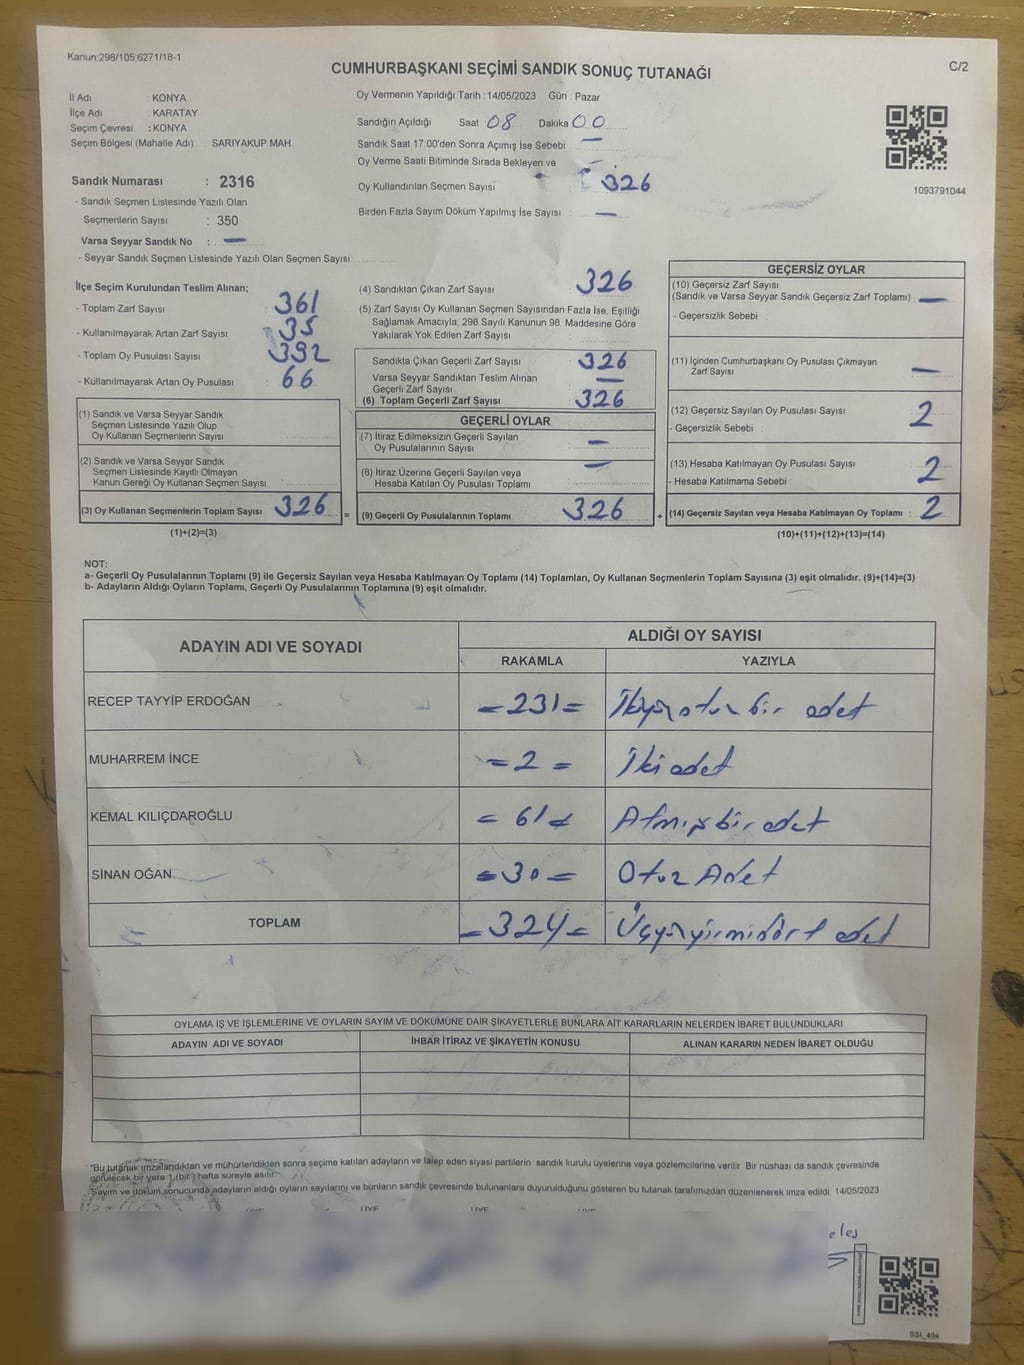 Kanun:298/105;6271/18-1
CUMHURBAŞKANI SEÇİMİ SANDIK SONUÇ TUTANAĞI
C/2
İl Adı : KONYA
İlçe Adı : KARATAY
Seçim Çevresi : KONYA
Seçim Bölgesi (Mahalle Adı) SARIYAKUP MAH.
Oy Vermenin Yapıldığı Tarih : 14/05/2023 Gün : Pazar
Sandığın Açıldığı Saat 08 Dakika 00
Sandık Saat 17:00'den Sonra Açımış İse Sebebi —
Oy Verme Saati Bitiminde Sırada Bekleyen ve
Oy Kullandırılan Seçmen Sayısı : 326
Birden Fazla Sayım Döküm Yapılmış İse Sayısı : —
1093791044
Sandık Numarası : 2316
- Sandık Seçmen Listesinde Yazılı Olan
Seçmenlerin Sayısı : 350
Varsa Seyyar Sandık No : —
- Seyyar Sandık Seçmen Listesinde Yazılı Olan Seçmen Sayısı:
İlçe Seçim Kurulundan Teslim Alınan;
- Toplam Zarf Sayısı : 361
- Kullanılmayarak Artan Zarf Sayısı : 35
- Toplam Oy Pusulası Sayısı : 392
- Kullanılmayarak Artan Oy Pusulası : 66
(1) Sandık ve Varsa Seyyar Sandık
Seçmen Listesinde Yazılı Olup
Oy Kullanan Seçmenlerin Sayısı :
(2) Sandık ve Varsa Seyyar Sandık
Seçmen Listesinde Kayıtlı Olmayan
Kanun Gereği Oy Kullanan Seçmen Sayısı :
(3) Oy Kullanan Seçmenlerin Toplam Sayısı 326
=
(1)+(2)=(3)
(4) Sandıktan Çıkan Zarf Sayısı : 326
(5) Zarf Sayısı Oy Kullanan Seçmen Sayısından Fazla İse, Eşitliği
Sağlamak Amacıyla; 298 Sayılı Kanunun 98. Maddesine Göre
Yakılarak Yok Edilen Zarf Sayısı :
Sandıkta Çıkan Geçerli Zarf Sayısı : 326
Varsa Seyyar Sandıktan Teslim Alınan
Geçerli Zarf Sayısı : —
(6) Toplam Geçerli Zarf Sayısı : 326
GEÇERLİ OYLAR
(7) İtiraz Edilmeksizin Geçerli Sayılan
Oy Pusulalarının Sayısı : —
(8) İtiraz Üzerine Geçerli Sayılan veya
Hesaba Katılan Oy Pusulası Toplamı : —
(9) Geçerli Oy Pusulalarının Toplamı : 326
+
GEÇERSİZ OYLAR
(10) Geçersiz Zarf Sayısı
(Sandık ve Varsa Seyyar Sandık Geçersiz Zarf Toplamı) : —
- Geçersizlik Sebebi :
(11) İçinden Cumhurbaşkanı Oy Pusulası Çıkmayan
Zarf Sayısı : —
(12) Geçersiz Sayılan Oy Pusulası Sayısı : 2
- Geçersizlik Sebebi :
(13) Hesaba Katılmayan Oy Pusulası Sayısı : 2
- Hesaba Katılmama Sebebi :
(14) Geçersiz Sayılan veya Hesaba Katılmayan Oy Toplamı : 2
(10)+(11)+(12)+(13)=(14)
NOT:
a- Geçerli Oy Pusulalarının Toplamı (9) ile Geçersiz Sayılan veya Hesaba Katılmayan Oy Toplamı (14) Toplamları, Oy Kullanan Seçmenlerin Toplam Sayısına (3) eşit olmalıdır. (9)+(14)=(3)
b- Adayların Aldığı Oyların Toplamı, Geçerli Oy Pusulalarının Toplamına (9) eşit olmalıdır.
ADAYIN ADI VE SOYADI ALDIĞI OY SAYISI
RAKAMLA YAZIYLA
RECEP TAYYİP ERDOĞAN =231= İkiyüzotuz bir adet
MUHARREM İNCE =2= İki adet
KEMAL KILIÇDAROĞLU =61= Atmış bir adet
SİNAN OĞAN =30= Otuz Adet
TOPLAM =324= Üçyüzyirmidört adet
OYLAMA İŞ VE İŞLEMLERİNE VE OYLARIN SAYIM VE DÖKÜMÜNE DAİR ŞİKAYETLERLE BUNLARA AİT KARARLARIN NELERDEN İBARET BULUNDUKLARI
ADAYIN ADI VE SOYADI İHBAR İTİRAZ VE ŞİKAYETİN KONUSU ALINAN KARARIN NEDEN İBARET OLDUĞU
*Bu tutanak imzalandıktan ve mühürlendikten sonra seçime katılan adayların ve talep eden siyasi partilerin sandık kurulu üyelerine veya gözlemcilerine verilir. Bir nüshası da sandık çevresinde
görülecek bir yere 1 (bir) hafta süreyle asılır.
*Sayım ve döküm sonucunda adayların aldığı oyların sayılarını ve bunların sandık çevresinde bulunanlara duyurulduğunu gösteren bu tutanak tarafımızdan düzenlenerek imza edildi. 14/05/2023
SSI_404